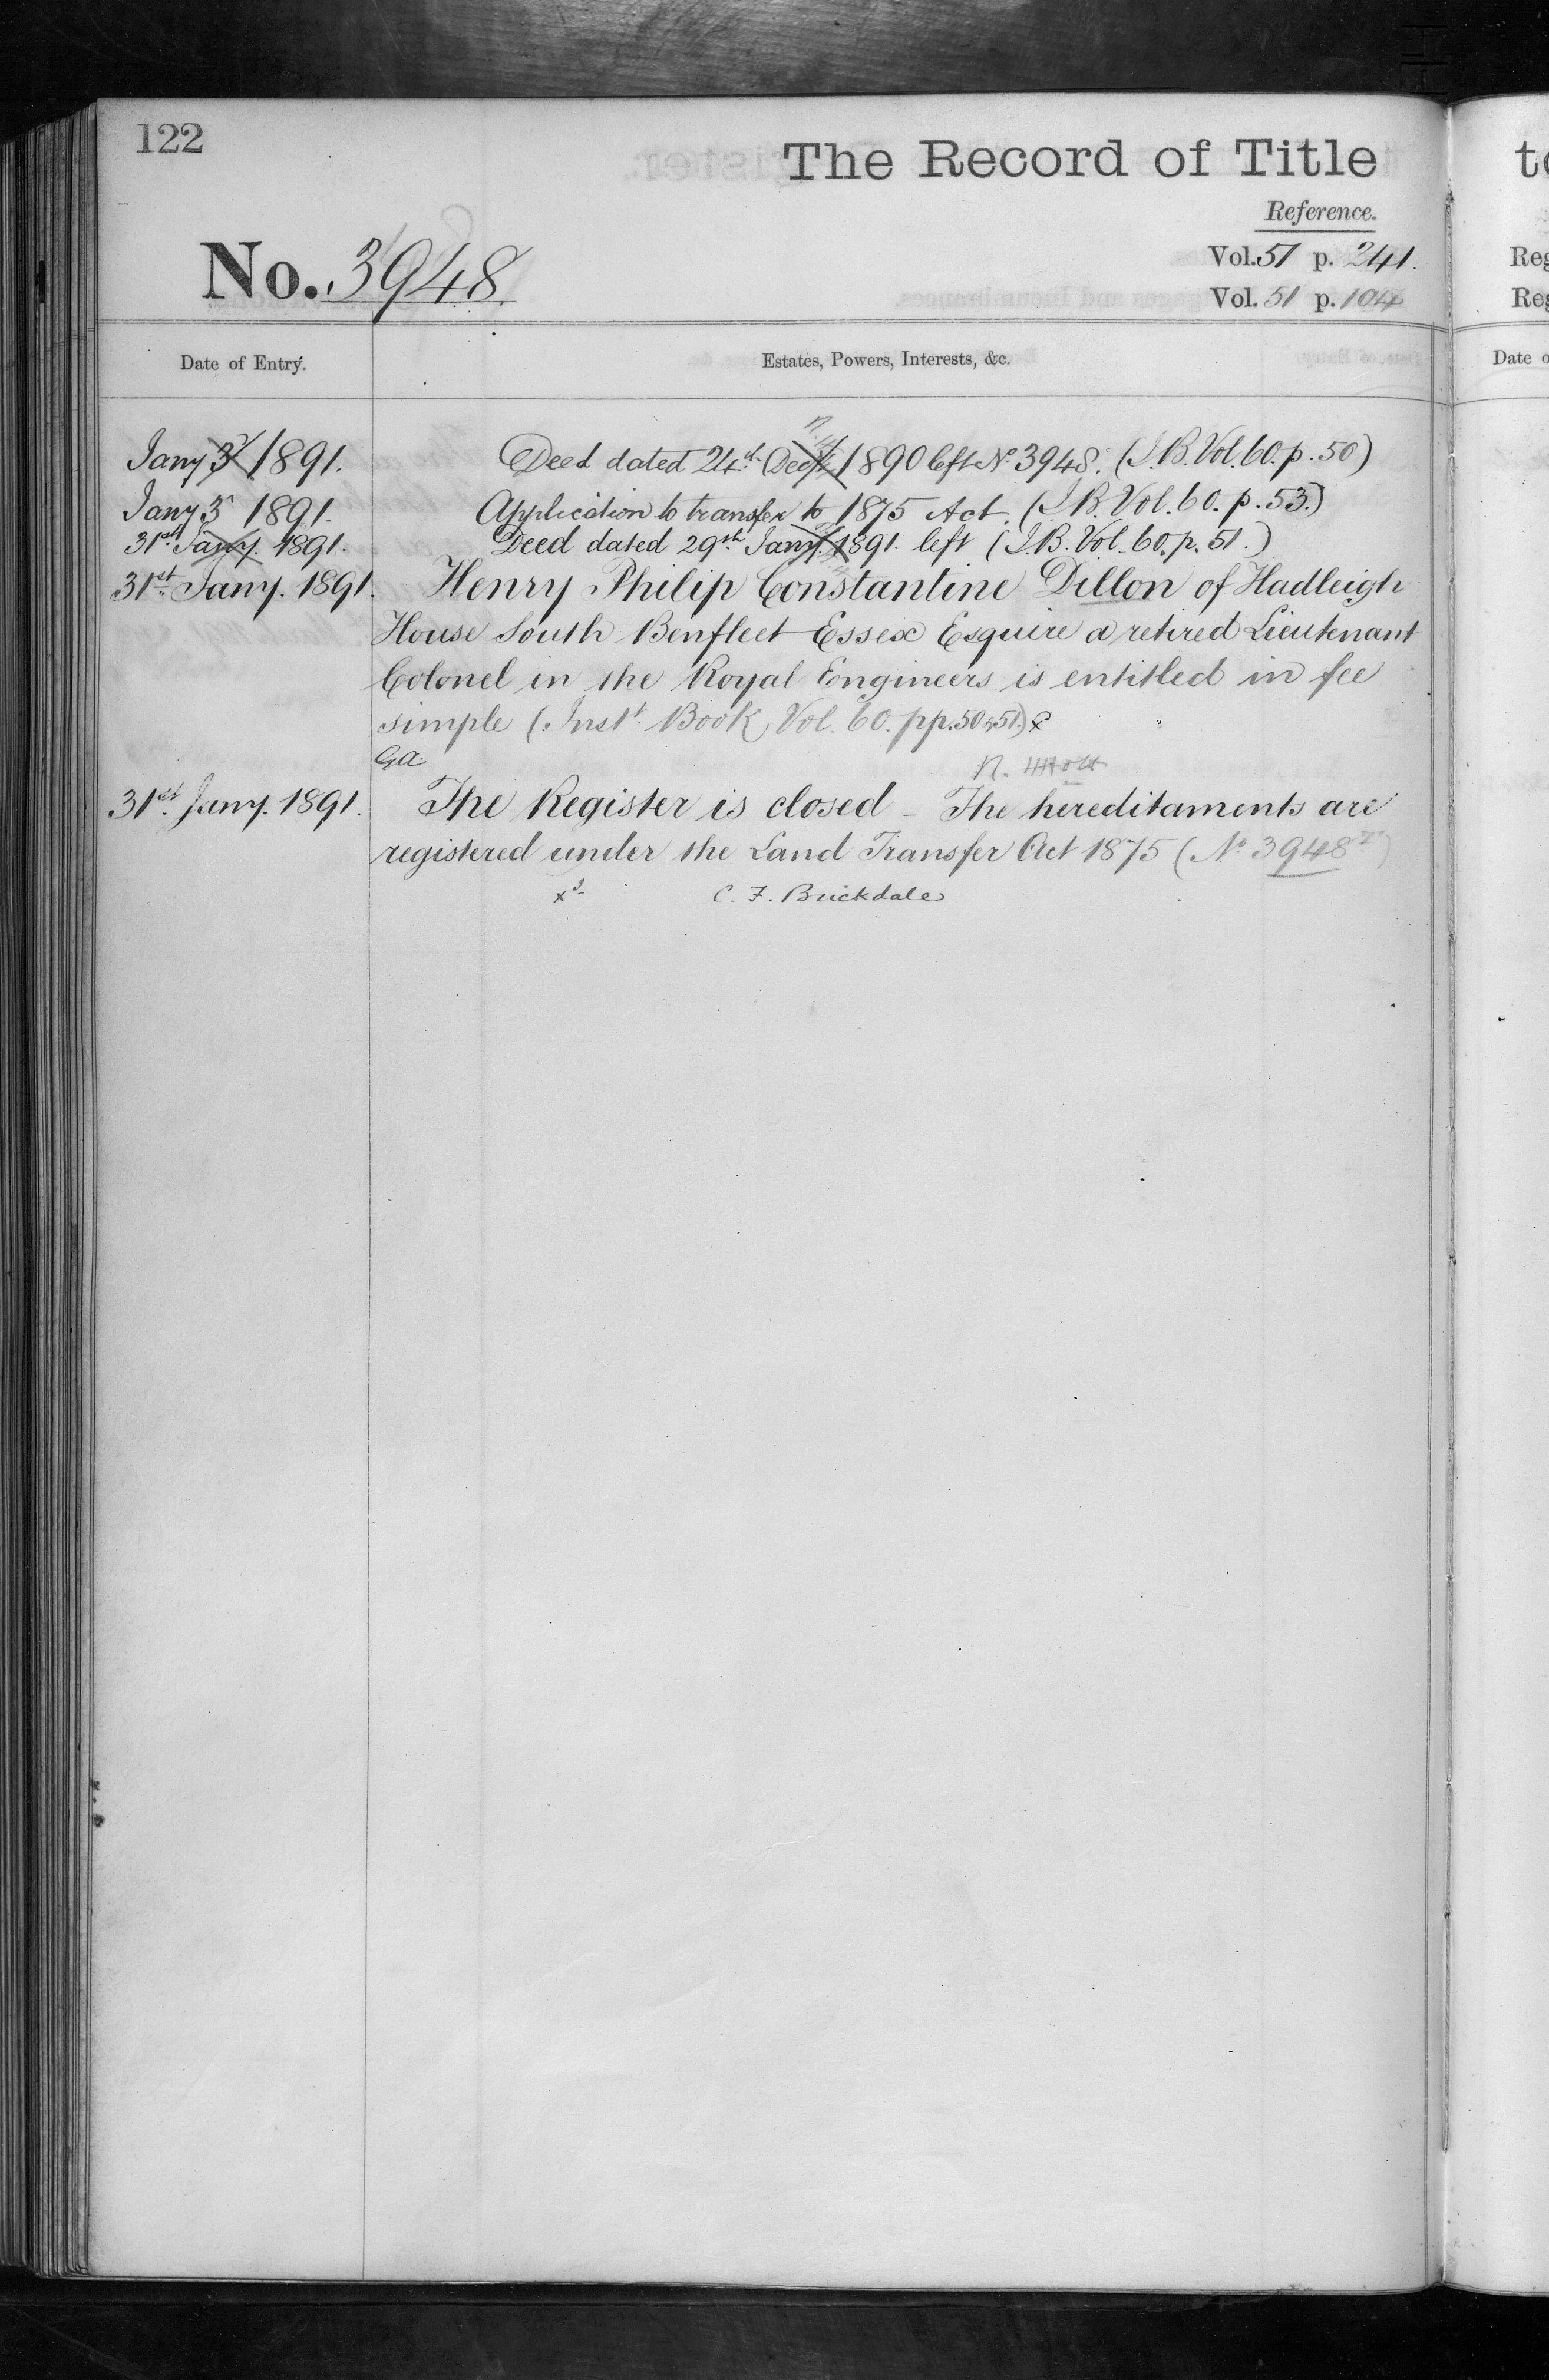 122
The Record of Title
Reference.
No. 3948.
Vol. 51 p. 241.
Vol. 51 p. 104
Date of Entry.
Estates, Powers, Interests, &c.
Jany 3 1891. Deed dated 24th Decr 1890 left No 3948. (I.B. Vol. 60. p. 50)
Jany 3 1891. Application to transfer to 1875 Act. (I.B. Vol. 60. p. 53.)
31st Jany. 1891. Deed dated 29th Jany. 1891. left (I.B. Vol. 60. p. 51.)
31st Jany. 1891. Henry Philip Constantine Dillon of Hadleigh
House South Benfleet Essex Esquire a retired Lieutenant
Colonel in the Royal Engineers is entitled in fee
simple (Inst. Book Vol. 60. pp. 50 & 51.)
G.A.
31st Jany. 1891. The Register is closed – The hereditaments are
registered under the Land Transfer Act 1875 (No 3948
C. F. Brickdale
to
Reg
Reg
Date o